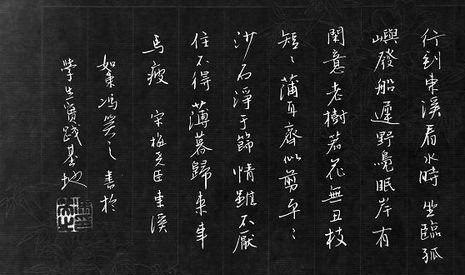 行到東溪看水時 坐臨孤
嶼發船遲 野鳧眠岸有
閑意 老樹著花無丑枝
短〻蒲耳齊似剪 平〻
沙石淨于篩 情雖不厭
住不得 薄暮歸來車
馬瘦 宋梅堯臣東溪
馮笑之書於
學生實踐基地